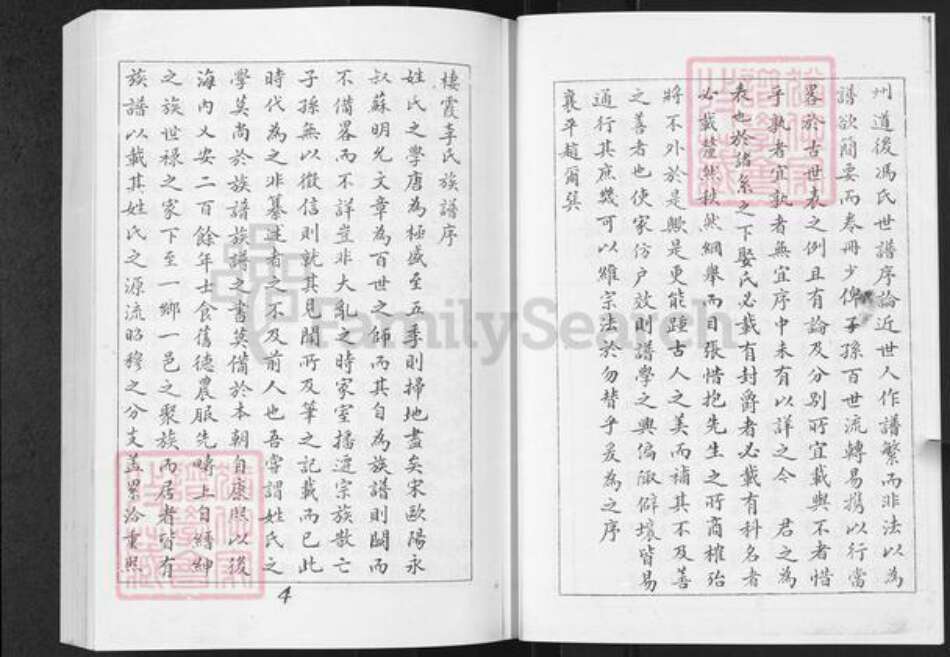 州道後馮氏世譜序論近世人作譜繁而非法以為
譜欲簡要而卷冊少俾子孫百世流轉易攜以行當
畧於古世表之例且有論及分別所宜載與不者惜
乎孰者宜孰者無宜序中未有以詳之今 君之為
表也於諸系之下娶氏必載有封爵者必載有科名者
必載釐然秩然綱舉而目張惜抱先生之所商榷殆
將不外於是歟是更能踵古人之美而補其不及善
之善者也使家仿户效則譜學之興偏陬僻壤皆易
通行其庶幾可以維宗法於勿替乎爰為之序
襄平趙爾巽
棲霞李氏族譜序
姓氏之學唐為極盛至五季則掃地盡矣宋歐陽永
叔蘇明允文章為百世之師而其自為族譜則闕而
不備畧而不詳豈非大亂之時家室播遷宗族散亡
子孫無以徵信則就其見聞所及筆之記載而已此
時代為之非纂述者之不及前人也吾嘗謂姓氏之
學莫尚於族譜族譜之書莫備於本朝自康熙以後
海內乂安二百餘年士食舊德農服先疇上自縉紳
之族世祿之家下至一鄉一邑之聚族而居者皆有
族譜以載其姓氏之源流昭穆之分支蓋累洽重熙
4
FamilySearch